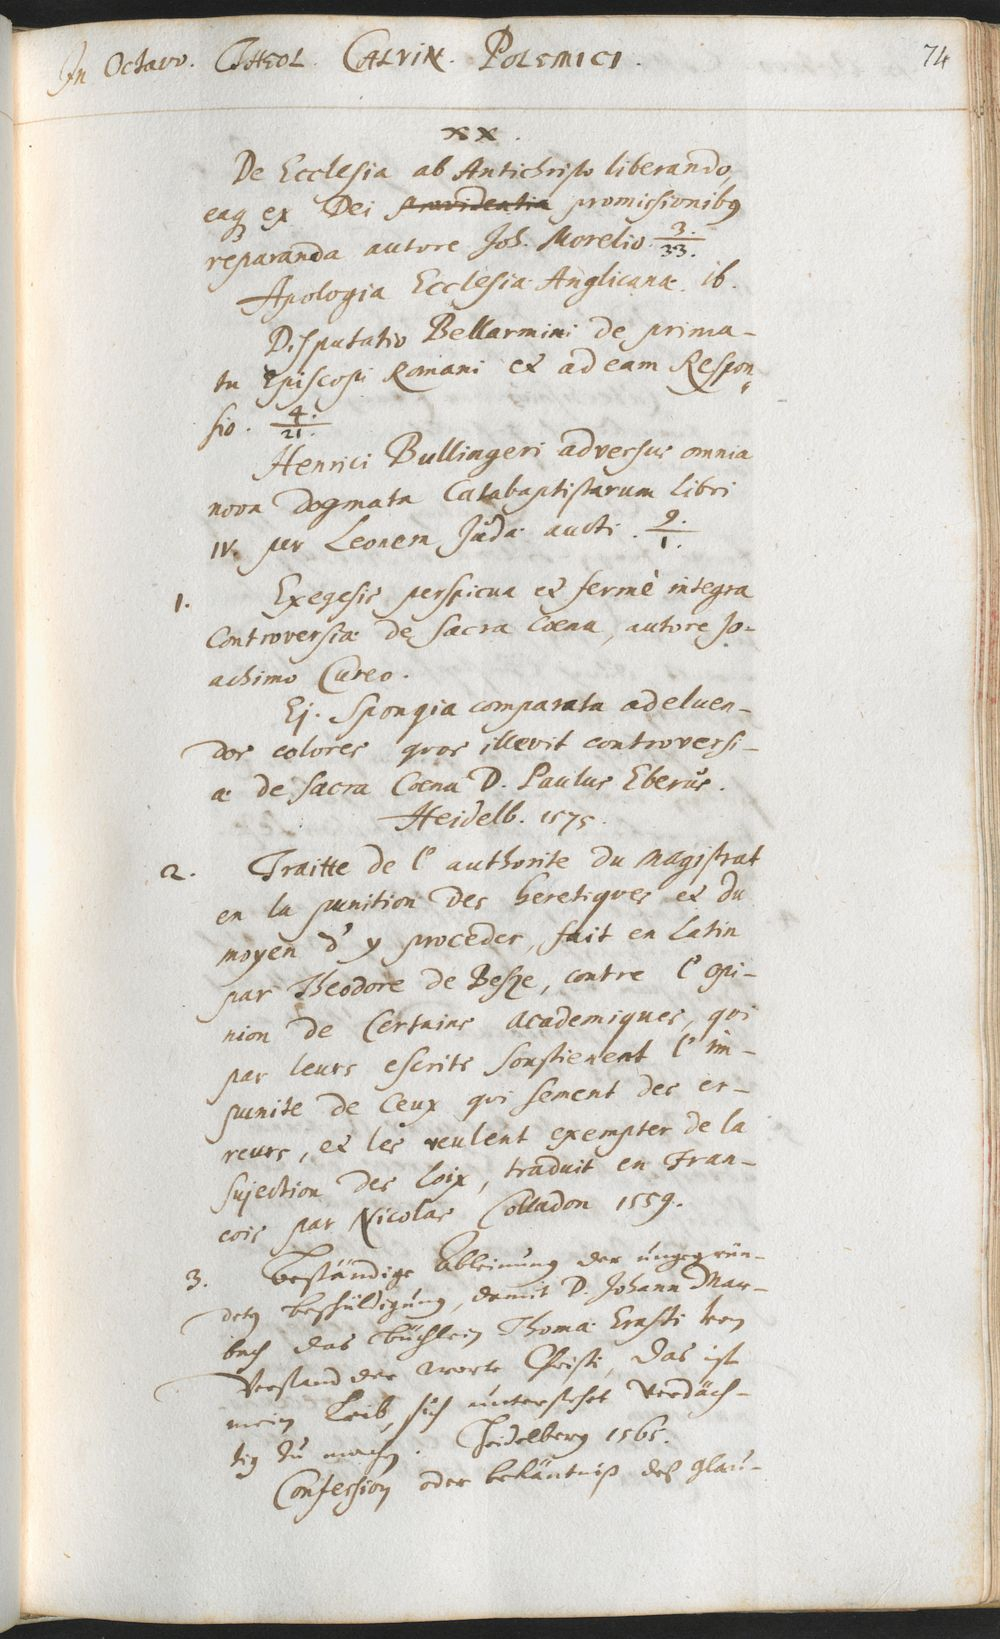 In Octavo. THEOL. CALVIN. POLEMICI.
74
XX.
De Ecclesia ab Antichristo liberando,
eaq ex Dei providentia promissionibq
reparanda autore Joh. Morelio. 3./33.
Apologia Ecclesiæ Anglicanæ. ib.
Disputatio Bellarmini de prima-
tu Episcopi Romani et ad eam Respon
sio. 4./21.
Henrici Bullingeri adversus omnia
nova dogmata Catabaptistarum libri
IV. per Leonem Judæ aucti. 9./1.
1. Exegesis perspicua et fermè integra
Controversiæ de Sacra Cœna, autore Jo-
achimo Cureo.
Ej. Spongia comparata ad eluen-
dos colores quos illevit controversi-
æ de Sacra Cœna D. Paulus Eberus.
Heidelb. 1575.
2. Traitte de l' authorite du Magistrat
en la punition des heretiques et du
moyen d' y proceder, fait en Latin
par Theodore de Besze, contre l' opi-
nion de Certains Academiques, qui
par leurs escrits soustienent l' im-
punite de Ceux qui sement des er-
reurs, et les veulent exempter de la
sujection des loix, traduit en Fran-
cois par Nicolas Colladon 1559.
3. Beständige Ableinung der ungegrün-
deten beschüldigung, damit D. Johann Mar-
bach das Büchlein Thomæ Erasti vom
Verstand der wortt Christi, das ist
mein Leib, sich untersteht verdäch-
tig zu machen. Heidelberg 1565.
Confession oder bekäntniß deß glau-